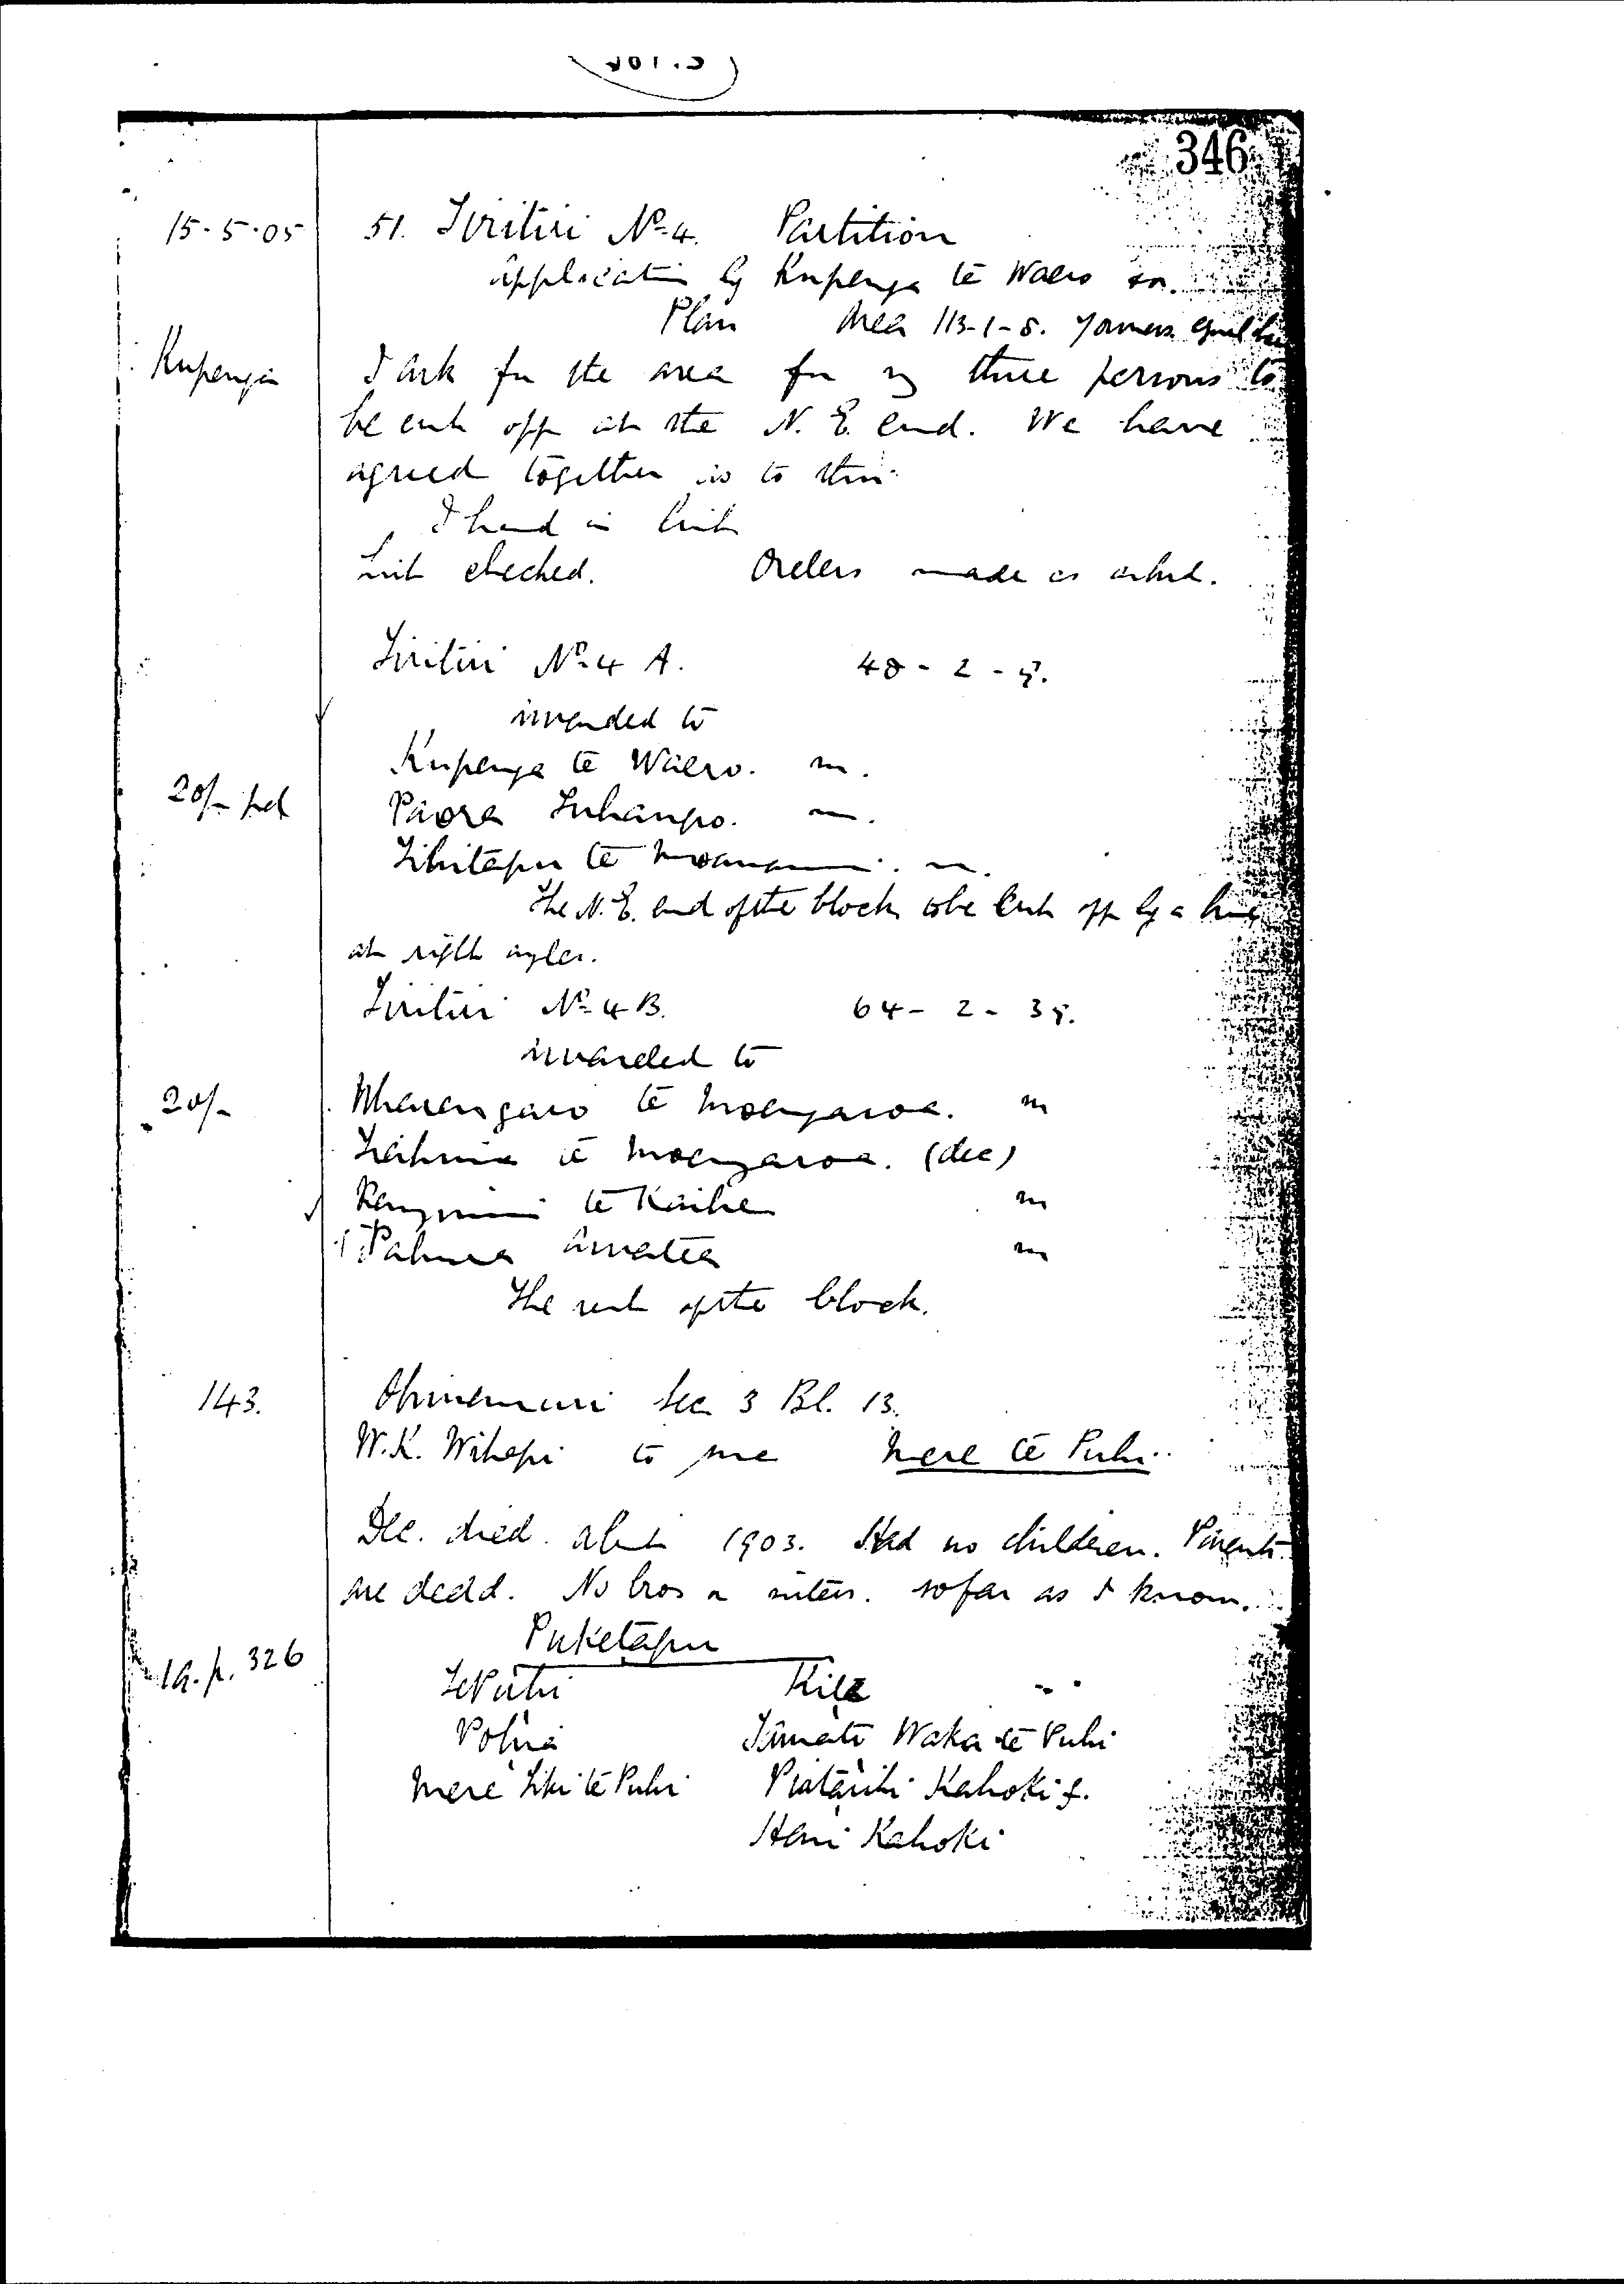 346
15.5.05 51. Tiritiri No 4. Partition
Application by Kupenga te Waero &or.
Plan Area 113-1-8. 7 owners equal
Kupenga I ask for the area for my three persons to
be cut off at the N.E. end. We have
agreed together as to this
I hand in list
List checked. Orders made as asked.
Tiritiri No 4 A. 48-2-
awarded to
Kupenga te Waero. m.
20/- pd Paora Tuhaupo. m.
Tihitapu te m.
The N.E. end of the block to be cut off by a line
at right angles.
Tiritiri No 4B. 64-2-
awarded to
20/- Wharengaro te Moengaroa. m
te Moengaroa. (dec)
te Kaihe m
Pahura Amatea m
The rest of the block.
143. Ohinemuri Sec 3 Bl. 13.
W.K. Wihapi to me Mere te Puhi
Dec. died about 1903. Had no children. Parents
are dead. No bros or sisters. so far as I know.
Puketapu
p. 326
Te Puhi
Pohia Timoti Waka te Puhi
Mere Tiki te Puhi Piatarihi Kahoki f.
Heni Kahoki